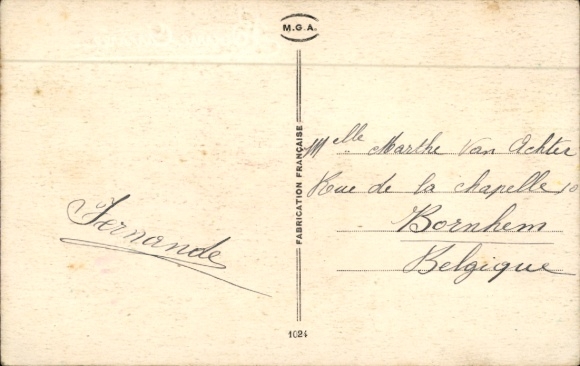 M.G.A.
FABRICATION FRANÇAISE
Fernande
Melle Marthe Van Achter
Rue de la chapelle 10
Bornhem
Belgique
1024